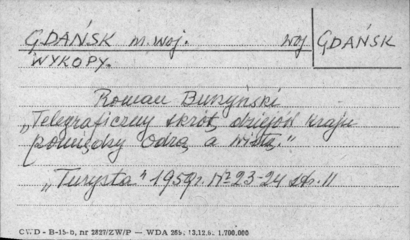 GDAŃSK m. woj. woj GDAŃSK
WYKOPY.
Roman Burzyński
„Telegraficzny skrót dziejów kraju
pomiędzy Odrą a Wisłą"
„Turysta" 1959r. Nº 23-24 str. 11
CWD - B-15-b, nr 2827/ZW/P — WDA 26b. 1.700.000